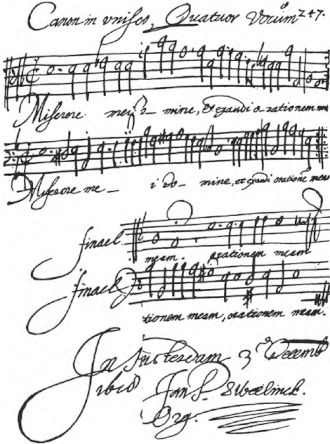 Canon in unisos, Quatuor Vocum 247.
Miserere mei do - mine, et exaudi orationem m
Miserere me - i do - mine, et exaudi oratione meam
finael. meam. orationem meam
finael tionem meam, orationem meam.
In Amsterdam 3 Decemb
Jan P. Sweelinck.
Org.